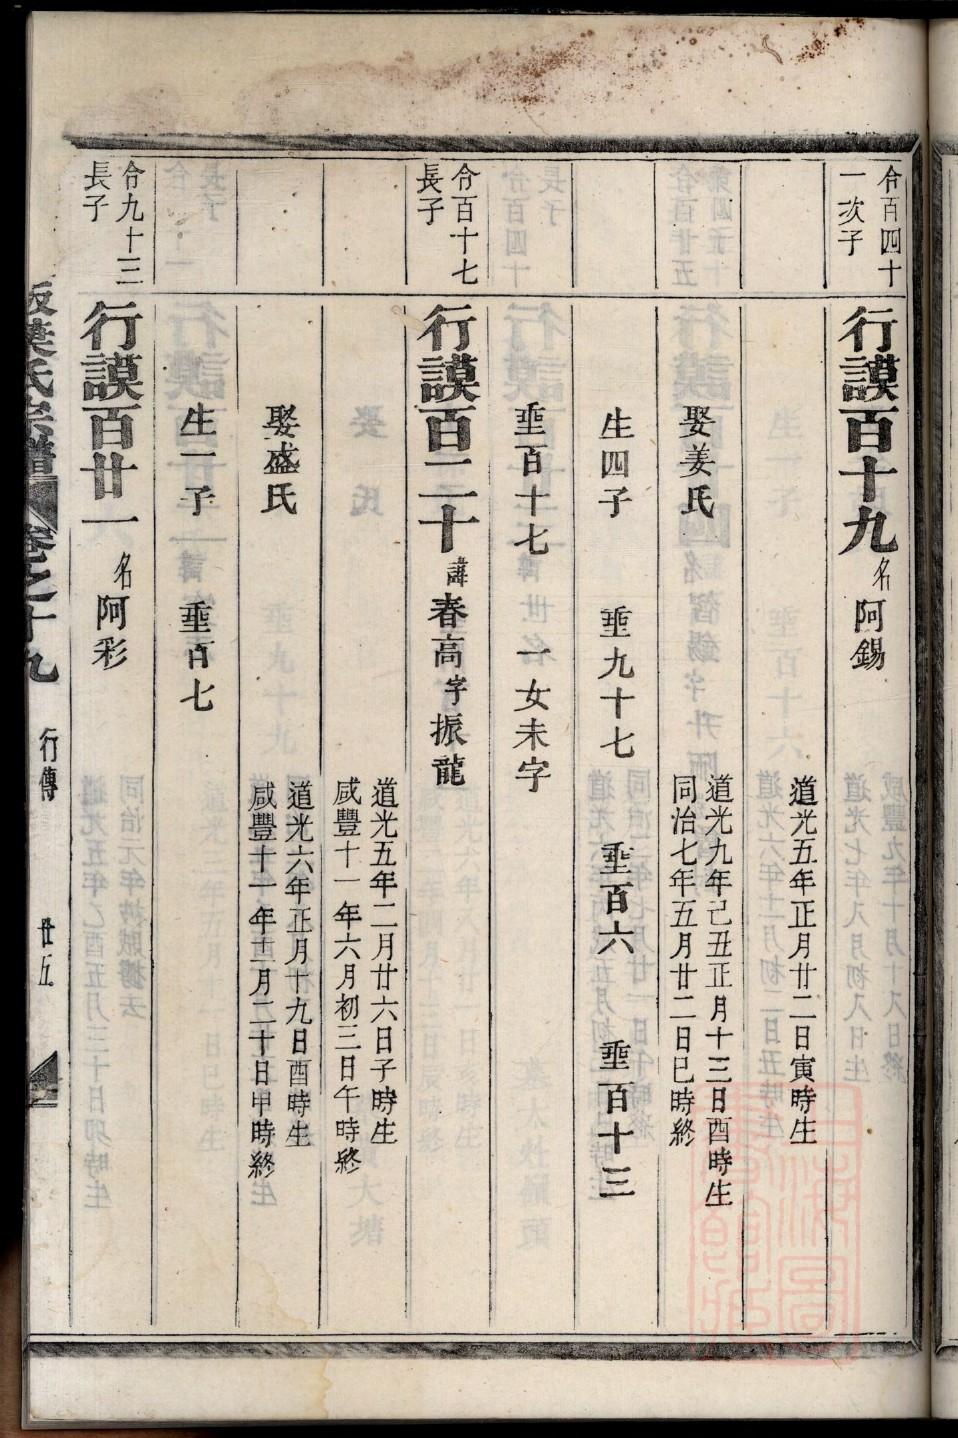 合百四十
一次子
行謨百十九 名阿錫
道光五年正月廿二日寅時生
娶姜氏
道光九年己丑正月十三日酉時生
同治七年五月廿二日巳時終
生四子 垂九十七 垂百六 垂百十三
垂百十七 一女未字
合百十七
長子
行謨百二十 諱春高字振龍
道光五年二月廿六日子時生
咸豐十一年六月初三日午時終
娶盛氏
道光六年正月十九日酉時生
咸豐十一年十二月二十日申時終
生一子 垂百七
合九十三
長子
行謨百廿一 名阿彩
葉氏宗譜 卷之十九 行傳 廿五